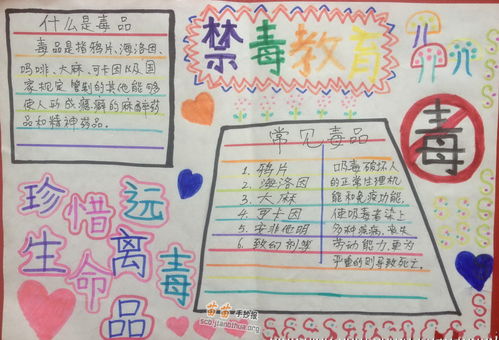 什么是毒品
毒品是指鸦片、海洛因、
吗啡、大麻、可卡因以及国
家规定管制的其他能够
使人形成瘾癖的麻醉药
品和精神药品。
禁毒教育
毒
常见毒品
1. 鸦片
2. 海洛因
3. 大麻
4. 可卡因
5. 安非他明
6. 致幻剂等
吸毒破坏人
的正常生理机
能和免疫功能,
使吸毒者染上
多种疾病,丧失
劳动能力,更为
严重的则导致死亡。
珍惜生命
远离毒品
苗苗手抄报
scb.jianbihua.org